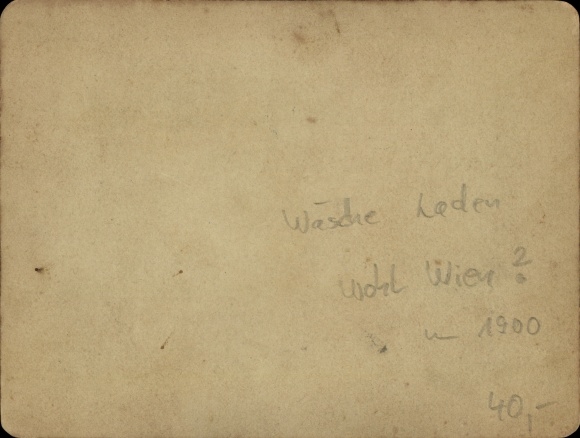 Wäsche Laden
Wohl Wien?
um 1900
40,-